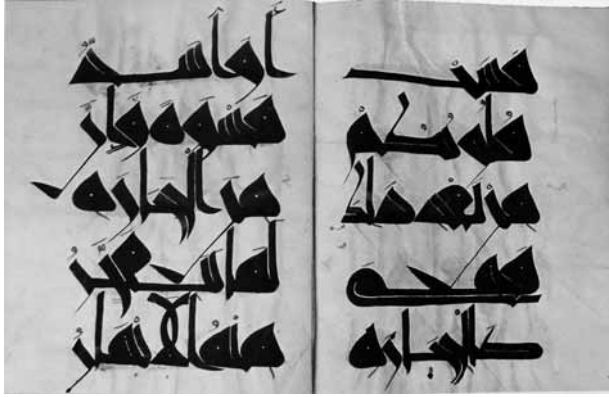 قست
قلوبكم
من بعد ذلك
فهى
كالحجاره
أو أشد
قسوة وإن
من الحجاره
لما يتفجر
منه الانهار